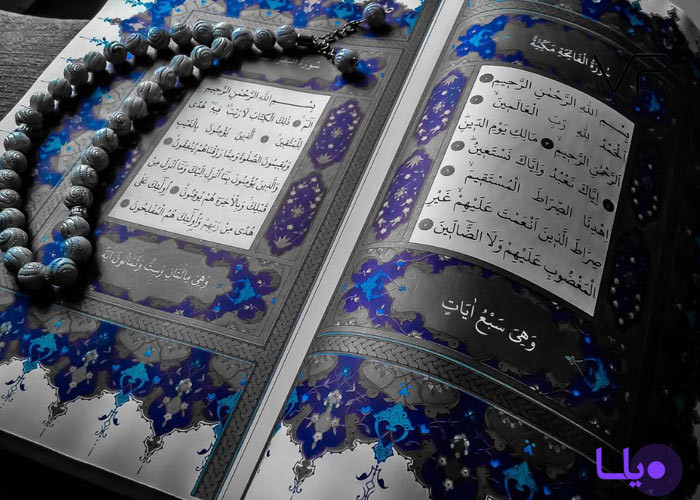 سُورَةُ الْفَاتِحَةِ مَكِّيَّةٌ
بِسْمِ اللهِ الرَّحْمٰنِ الرَّحِيمِ
اَلْحَمْدُ لِلّٰهِ رَبِّ الْعَالَمِينَ
اَلرَّحْمٰنِ الرَّحِيمِ مَالِكِ يَوْمِ الدِّينِ
اِيَّاكَ نَعْبُدُ وَاِيَّاكَ نَسْتَعِينُ
اِهْدِنَا الصِّرَاطَ الْمُسْتَقِيمَ
صِرَاطَ الَّذِينَ اَنْعَمْتَ عَلَيْهِمْ غَيْرِ
الْمَغْضُوبِ عَلَيْهِمْ وَلَا الضَّالِّينَ
وَهِيَ سَبْعُ اٰيَاتٍ
سُورَةُ
بِسْمِ اللهِ الرَّحْمٰنِ الرَّحِيمِ
الٓمٓ ذٰلِكَ الْكِتَابُ لَا رَيْبَ فِيهِ هُدًى
لِلْمُتَّقِينَ اَلَّذِينَ يُؤْمِنُونَ بِالْغَيْبِ
وَيُقِيمُونَ الصَّلٰوةَ وَمِمَّا رَزَقْنَاهُمْ يُنْفِقُونَ
وَالَّذِينَ يُؤْمِنُونَ بِمَا اُنْزِلَ اِلَيْكَ وَمَا اُنْزِلَ مِنْ
قَبْلِكَ وَبِالْاٰخِرَةِ هُمْ يُوقِنُونَ اُولٰئِكَ عَلٰى
هُدًى مِنْ رَبِّهِمْ وَاُولٰئِكَ هُمُ الْمُفْلِحُونَ
وَهِيَ مِائَتَانِ وَسِتٌّ وَثَمَانُونَ اٰيَةً
ویلا